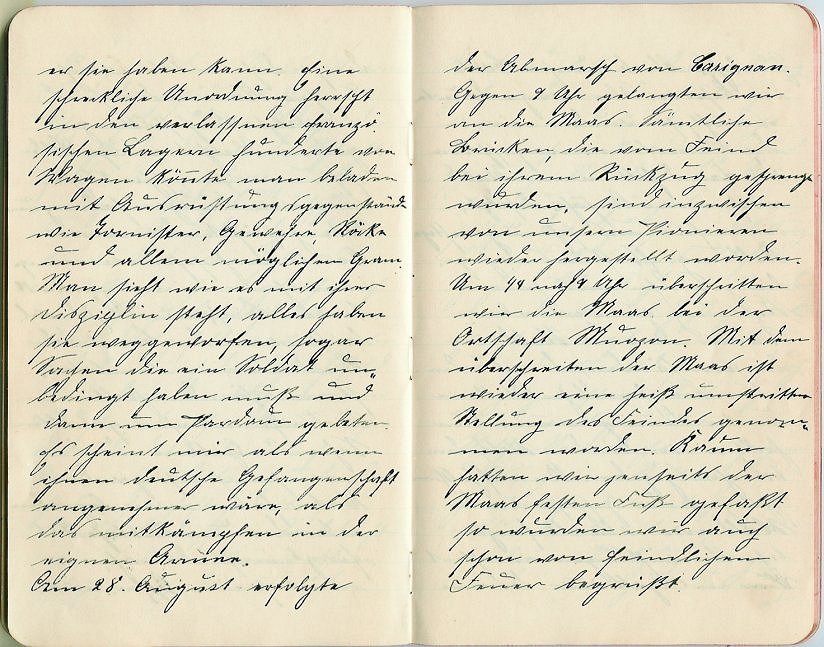 er sie haben kann. Eine
schreckliche Unordnung herrscht
in den verlassnen franzö
sischen Lagern hunderte von
Wagen könnte man beladen
mit Ausrüstungsgegenständen
wie Tornister, Gewehre, Röcke
und allem möglichen Gram.
Man sieht wie es mit ihrer
Disziplin steht, alles haben
sie weggeworfen, sogar
Sachen die ein Soldat un„
bedingt haben muß und
dann um Pardon gebeten.
Es scheint mir als wenn
ihnen deutsche Gefangenschaft
angenehmer wäre, als
das mitkämpfen in der
eignen Armee.
Am 28. August erfolgte
der Abmarsch von Carignan.
Gegen 9 Uhr gelangten wir
an die Maas. Sämtliche
Brücken, die vom Feind
bei ihrem Rückzug gesprengt
wurden, sind inzwischen
von unsern Pionieren
wieder hergestellt worden.
Um nach 9 Uhr überschritten
wir die Maas bei der
Ortschaft Mouzon. Mit dem
überschreiten der Maas ist
wieder eine heiß umstrittene
Stellung des Feindes genom„
men worden. Kaum
hatten wir jenseits der
Maas festen Fuß gefaßt
so wurden wir auch
schon von feindlichem
Feuer begrüßt.